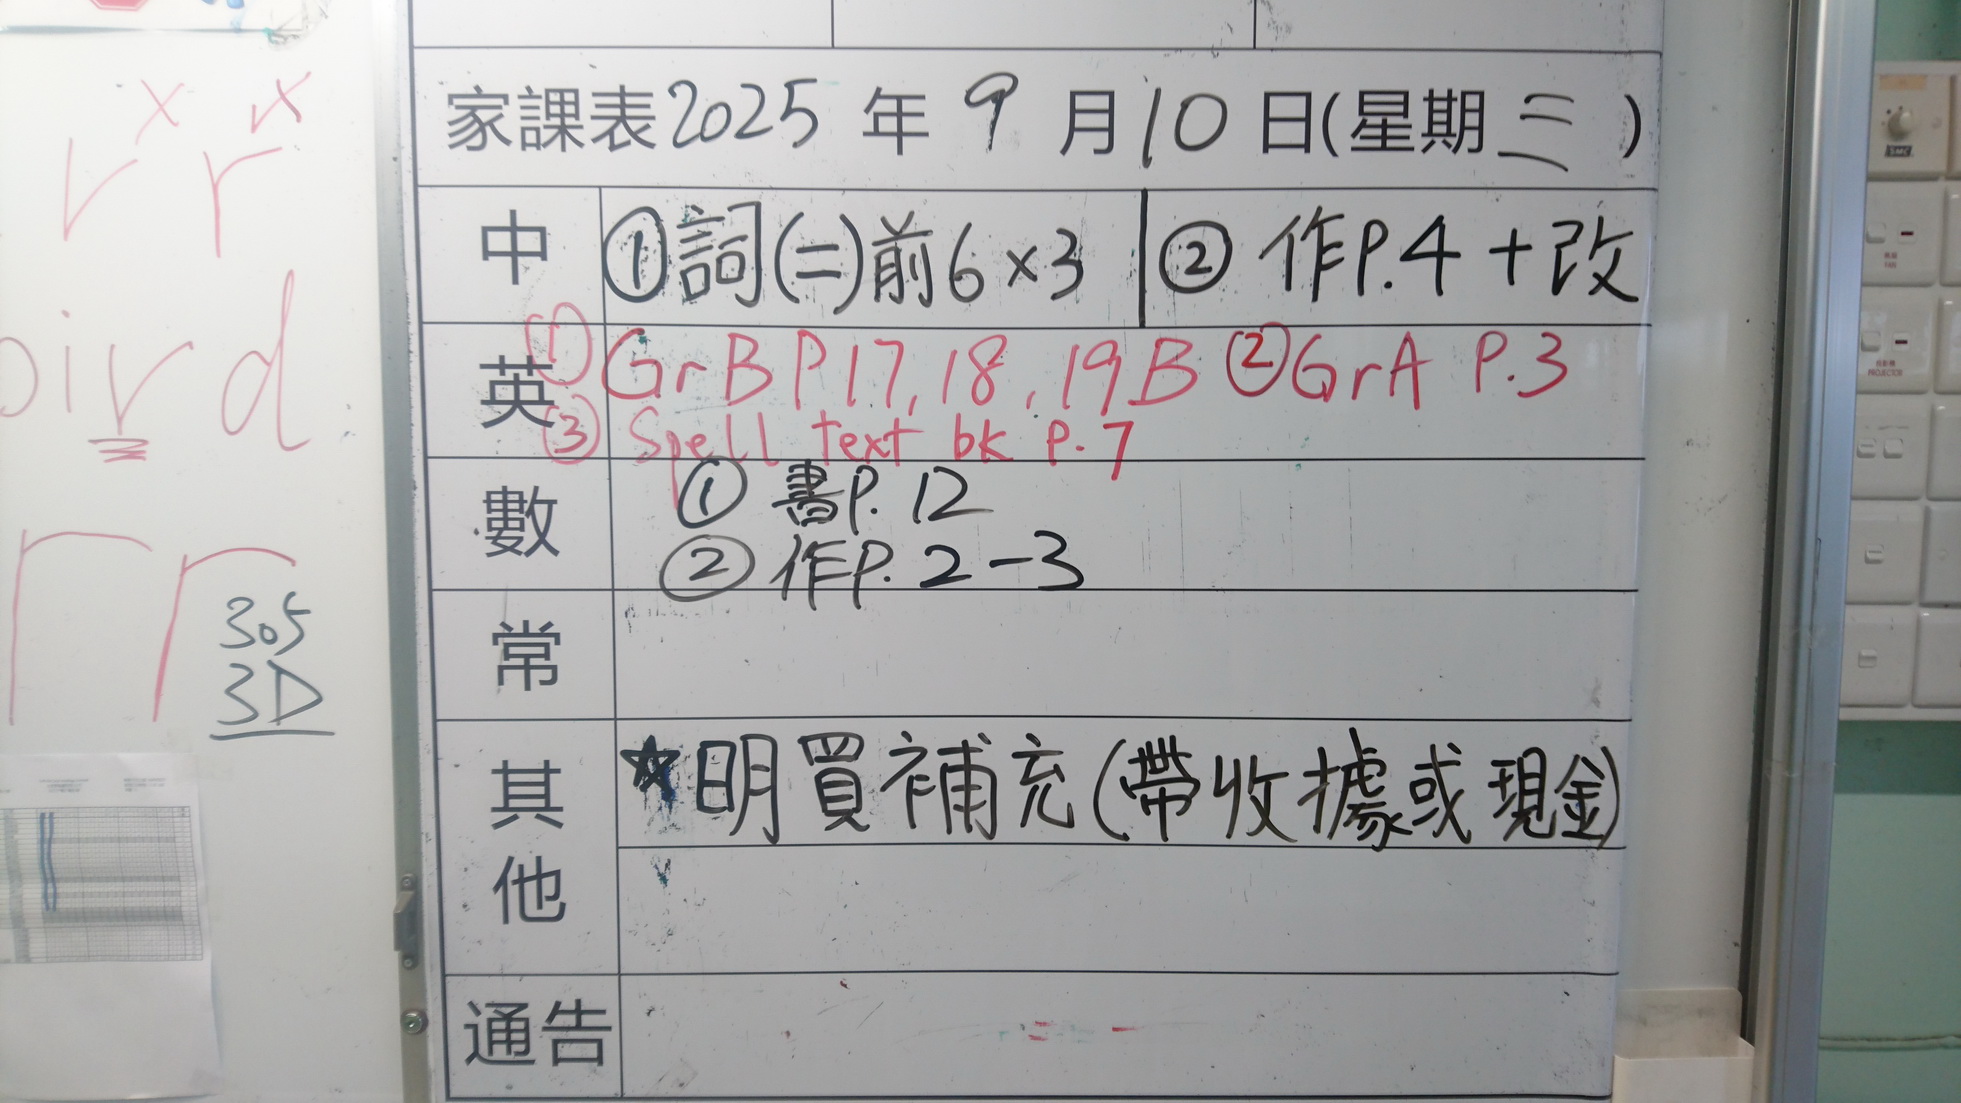 v x r x
bird
r r
305
3D
家課表2025年9月10日(星期三)
中 ①詞(二)前6×3 ②作P.4+改
英 ①GrB P17,18,19B ②GrA P.3
③ Spell text bk P.7
數 ①書P.12
②作P.2-3
常
其他 ★明買補充(帶收據或現金)
通告